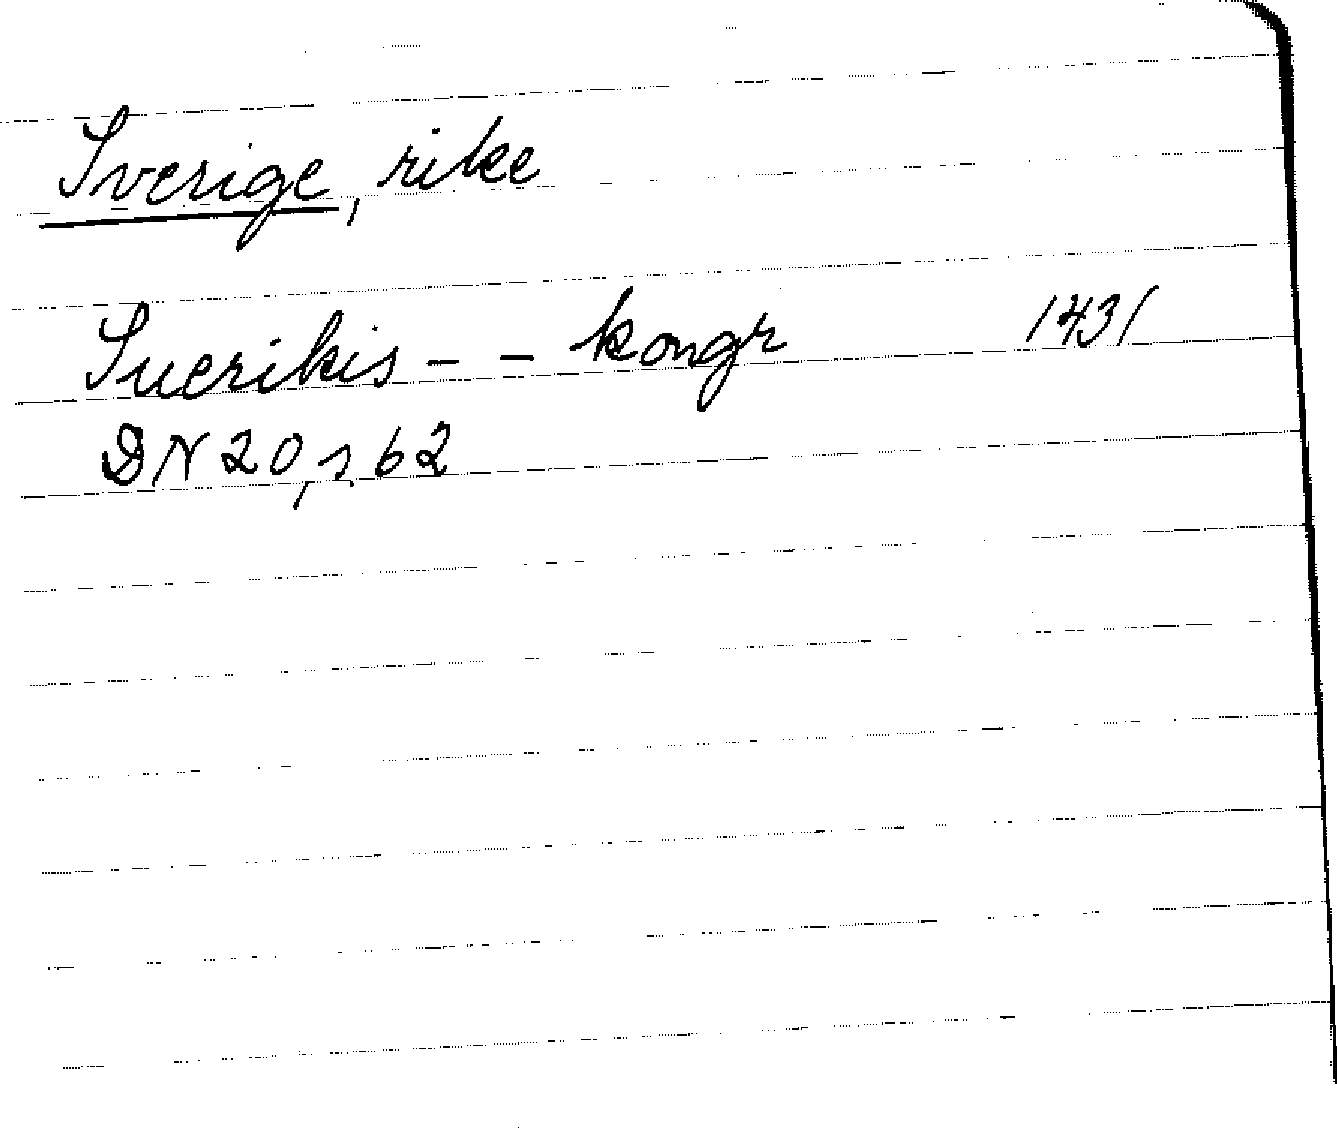 Sverige, rike
Suerikis - - kongr 1431
DN 20, s, 62